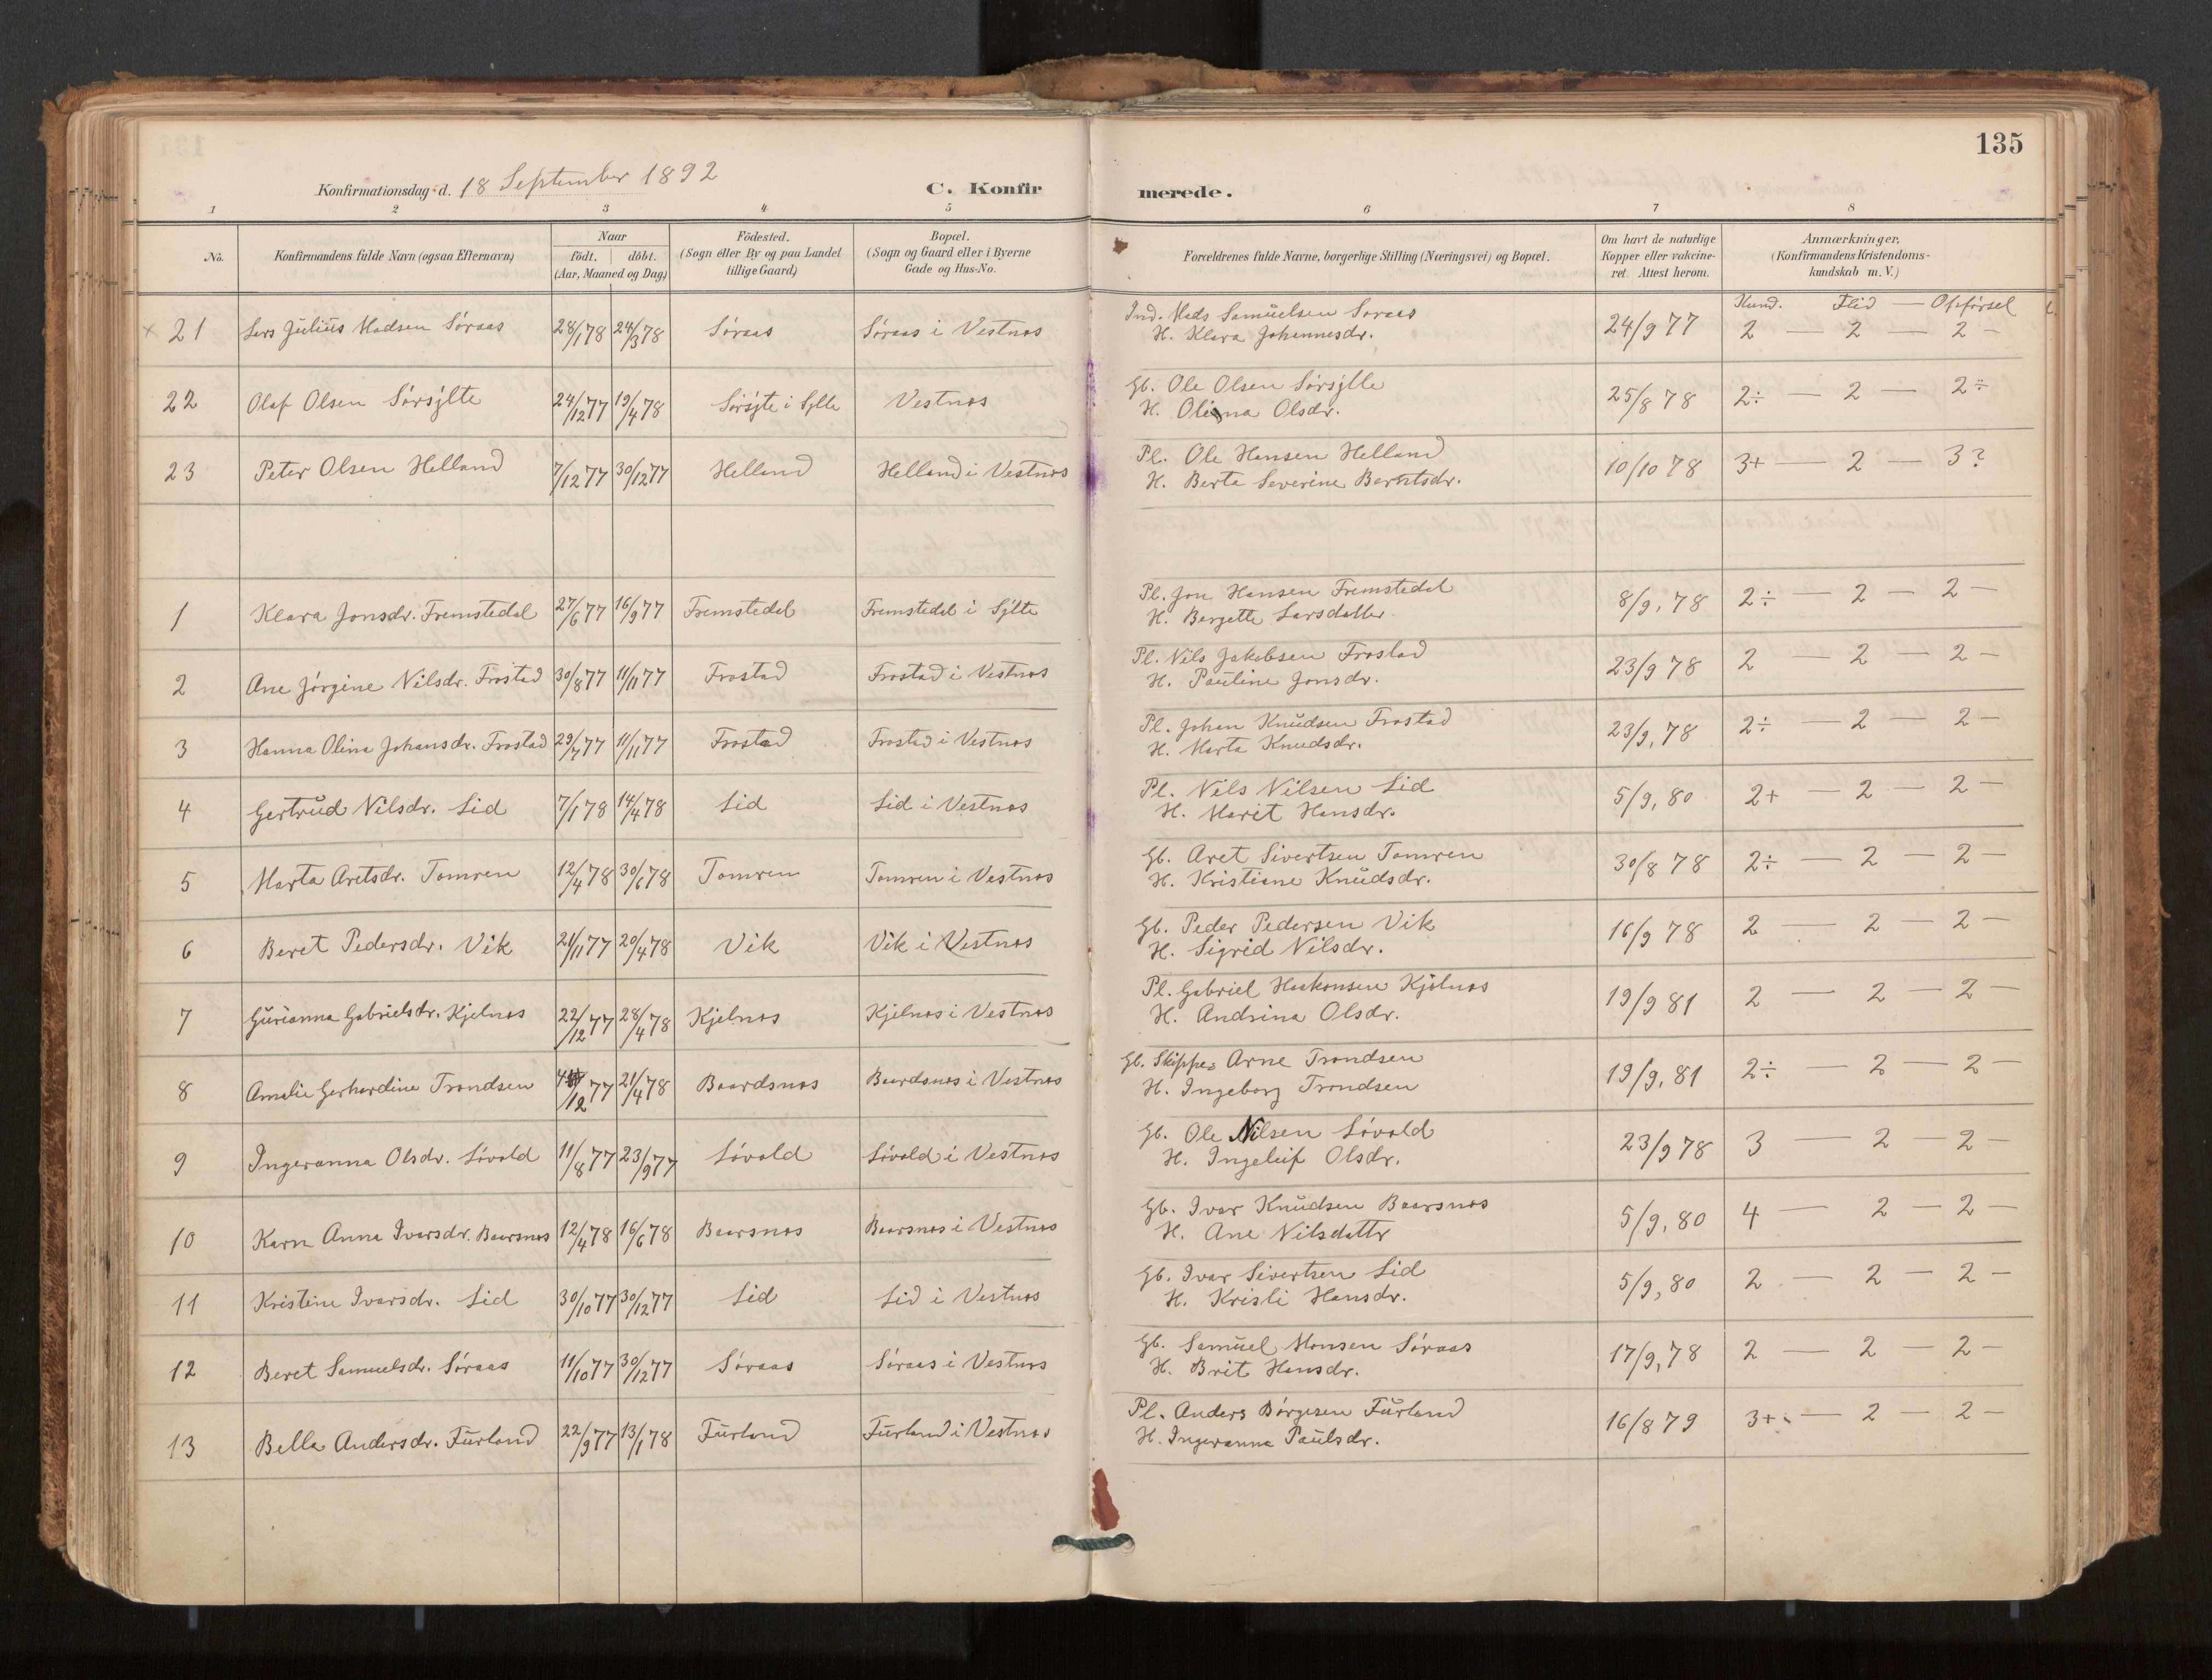 135
Konfirmationsdag d. 18 September 1892
C. Konfirmerede.
1 2 3 4 5 6 7 8
No. Konfirmandens fulde Navn (ogsaa Efternavn) Naar födt. döbt. (Aar, Maaned og Dag) Födested. (Sogn eller By og paa Landet tillige Gaard) Bopæl. (Sogn og Gaard eller i Byerne Gade og Hus-No. Forældrenes fulde Navne, borgerlige Stilling (Næringsvei) og Bopæl. Om havt de naturlige Kopper eller vakcineret. Attest herom. Anmærkninger. (Konfirmandens Kristendomskundskab m. V.)
Kund. Flid — Opførsel
× 21 Lars Julius Madsen Søraas 28/1 78 24/3 78 Søraas Søraas i Vestnes Ind. Mads Samuelsen Søraas 24/9 77 2 — 2 — 2 —
H. Klara Johannesdr.
22 Olaf Olsen Sørsylte 24/12 77 19/4 78 Sørsyte i Sylte Vestnes Gb. Ole Olsen Sørsylte 25/8 78 2÷ — 2 — 2÷
H. Olina Olsdr.
23 Peter Olsen Helland 7/12 77 30/12 77 Helland Helland i Vestnes Pl. Ole Hansen Helland 10/10 78 3+ — 2 — 3?
H. Berte Severine Berntsdr.
1 Klara Jonsdr. Fremstedal 27/6 77 16/9 77 Fremstedal Fremstedal i Sylte Pl. Jon Hansen Fremstedal 8/9, 78 2÷ — 2 — 2 —
H. Bergette Larsdatter
2 Ane Jørgine Nilsdr. Frostad 30/8 77 11/11 77 Frostad Frostad i Vestnes Pl. Nils Jakobsen Frostad 23/9 78 2 — 2 — 2 —
H. Pauline Jonsdr.
3 Hanna Olina Johansdr. Frostad 29/7 77 11/11 77 Frostad Frostad i Vestnes Pl. Johan Knudsen Frostad 23/9, 78 2÷ — 2 — 2 —
H. Marta Knudsdr.
4 Gertrud Nilsdr. Lid 7/1 78 14/4 78 Lid Lid i Vestnes Pl. Nils Nilsen Lid 5/9, 80 2+ — 2 — 2 —
H. Marit Hansdr.
5 Marta Aretsdr. Tomren 12/4 78 30/6 78 Tomren Tomren i Vestnes Gb. Aret Sivertsen Tomren 30/8 78 2÷ — 2 — 2 —
H. Kristiane Knudsdr.
6 Beret Pedersdr. Vik 21/11 77 20/4 78 Vik Vik i Vestnes Gb. Peder Pedersen Vik 16/9 78 2 — 2 — 2 —
H. Sigrid Nilsdr.
7 Gurianna Gabrielsdr. Kjelnes 22/12 77 28/4 78 Kjelnes Kjelnes i Vestnes Pl. Gabriel Haakonsen Kjelnes 19/9 81 2 — 2 — 2 —
H. Andrina Olsdr.
8 Amalie Gerhardine Trondsen 4/12 77 21/4 78 Baardsnes Baardsnes i Vestnes Gb. Skipper Arne Trondsen 19/9, 81 2÷ — 2 — 2 —
H. Ingeborg Trondsen
9 Ingeranna Olsdr. Løvold 11/8 77 23/9 77 Løvold Løvold i Vestnes Gb. Ole Nilsen Løvold 23/9 78 3 — 2 — 2 —
H. Ingeleif Olsdr.
10 Karn Anna Ivarsdr. Baarsnes 12/4 78 16/6 78 Baarsnes Baarsnes i Vestnes Gb. Ivar Knudsen Baarsnes 5/9, 80 4 — 2 — 2 —
H. Ane Nilsdattr
11 Kristine Ivarsdr. Lid 30/10 77 30/12 77 Lid Lid i Vestnes Gb. Ivar Sivertsen Lid 5/9, 80 2 — 2 — 2 —
H. Kristi Hansdr.
12 Beret Samuelsdr. Søraas 11/10 77 30/12 77 Søraas Søraas i Vestnes Gb. Samuel Monsen Søraas 17/9, 78 2 — 2 — 2 —
H. Brit Hansdr.
13 Bella Andersdr. Furland 22/9 77 13/1 78 Furland Furland i Vestnes Pl. Anders Børgesen Furland 16/8 79 3+ — 2 — 2 —
H. Ingeranna Paulsdr.